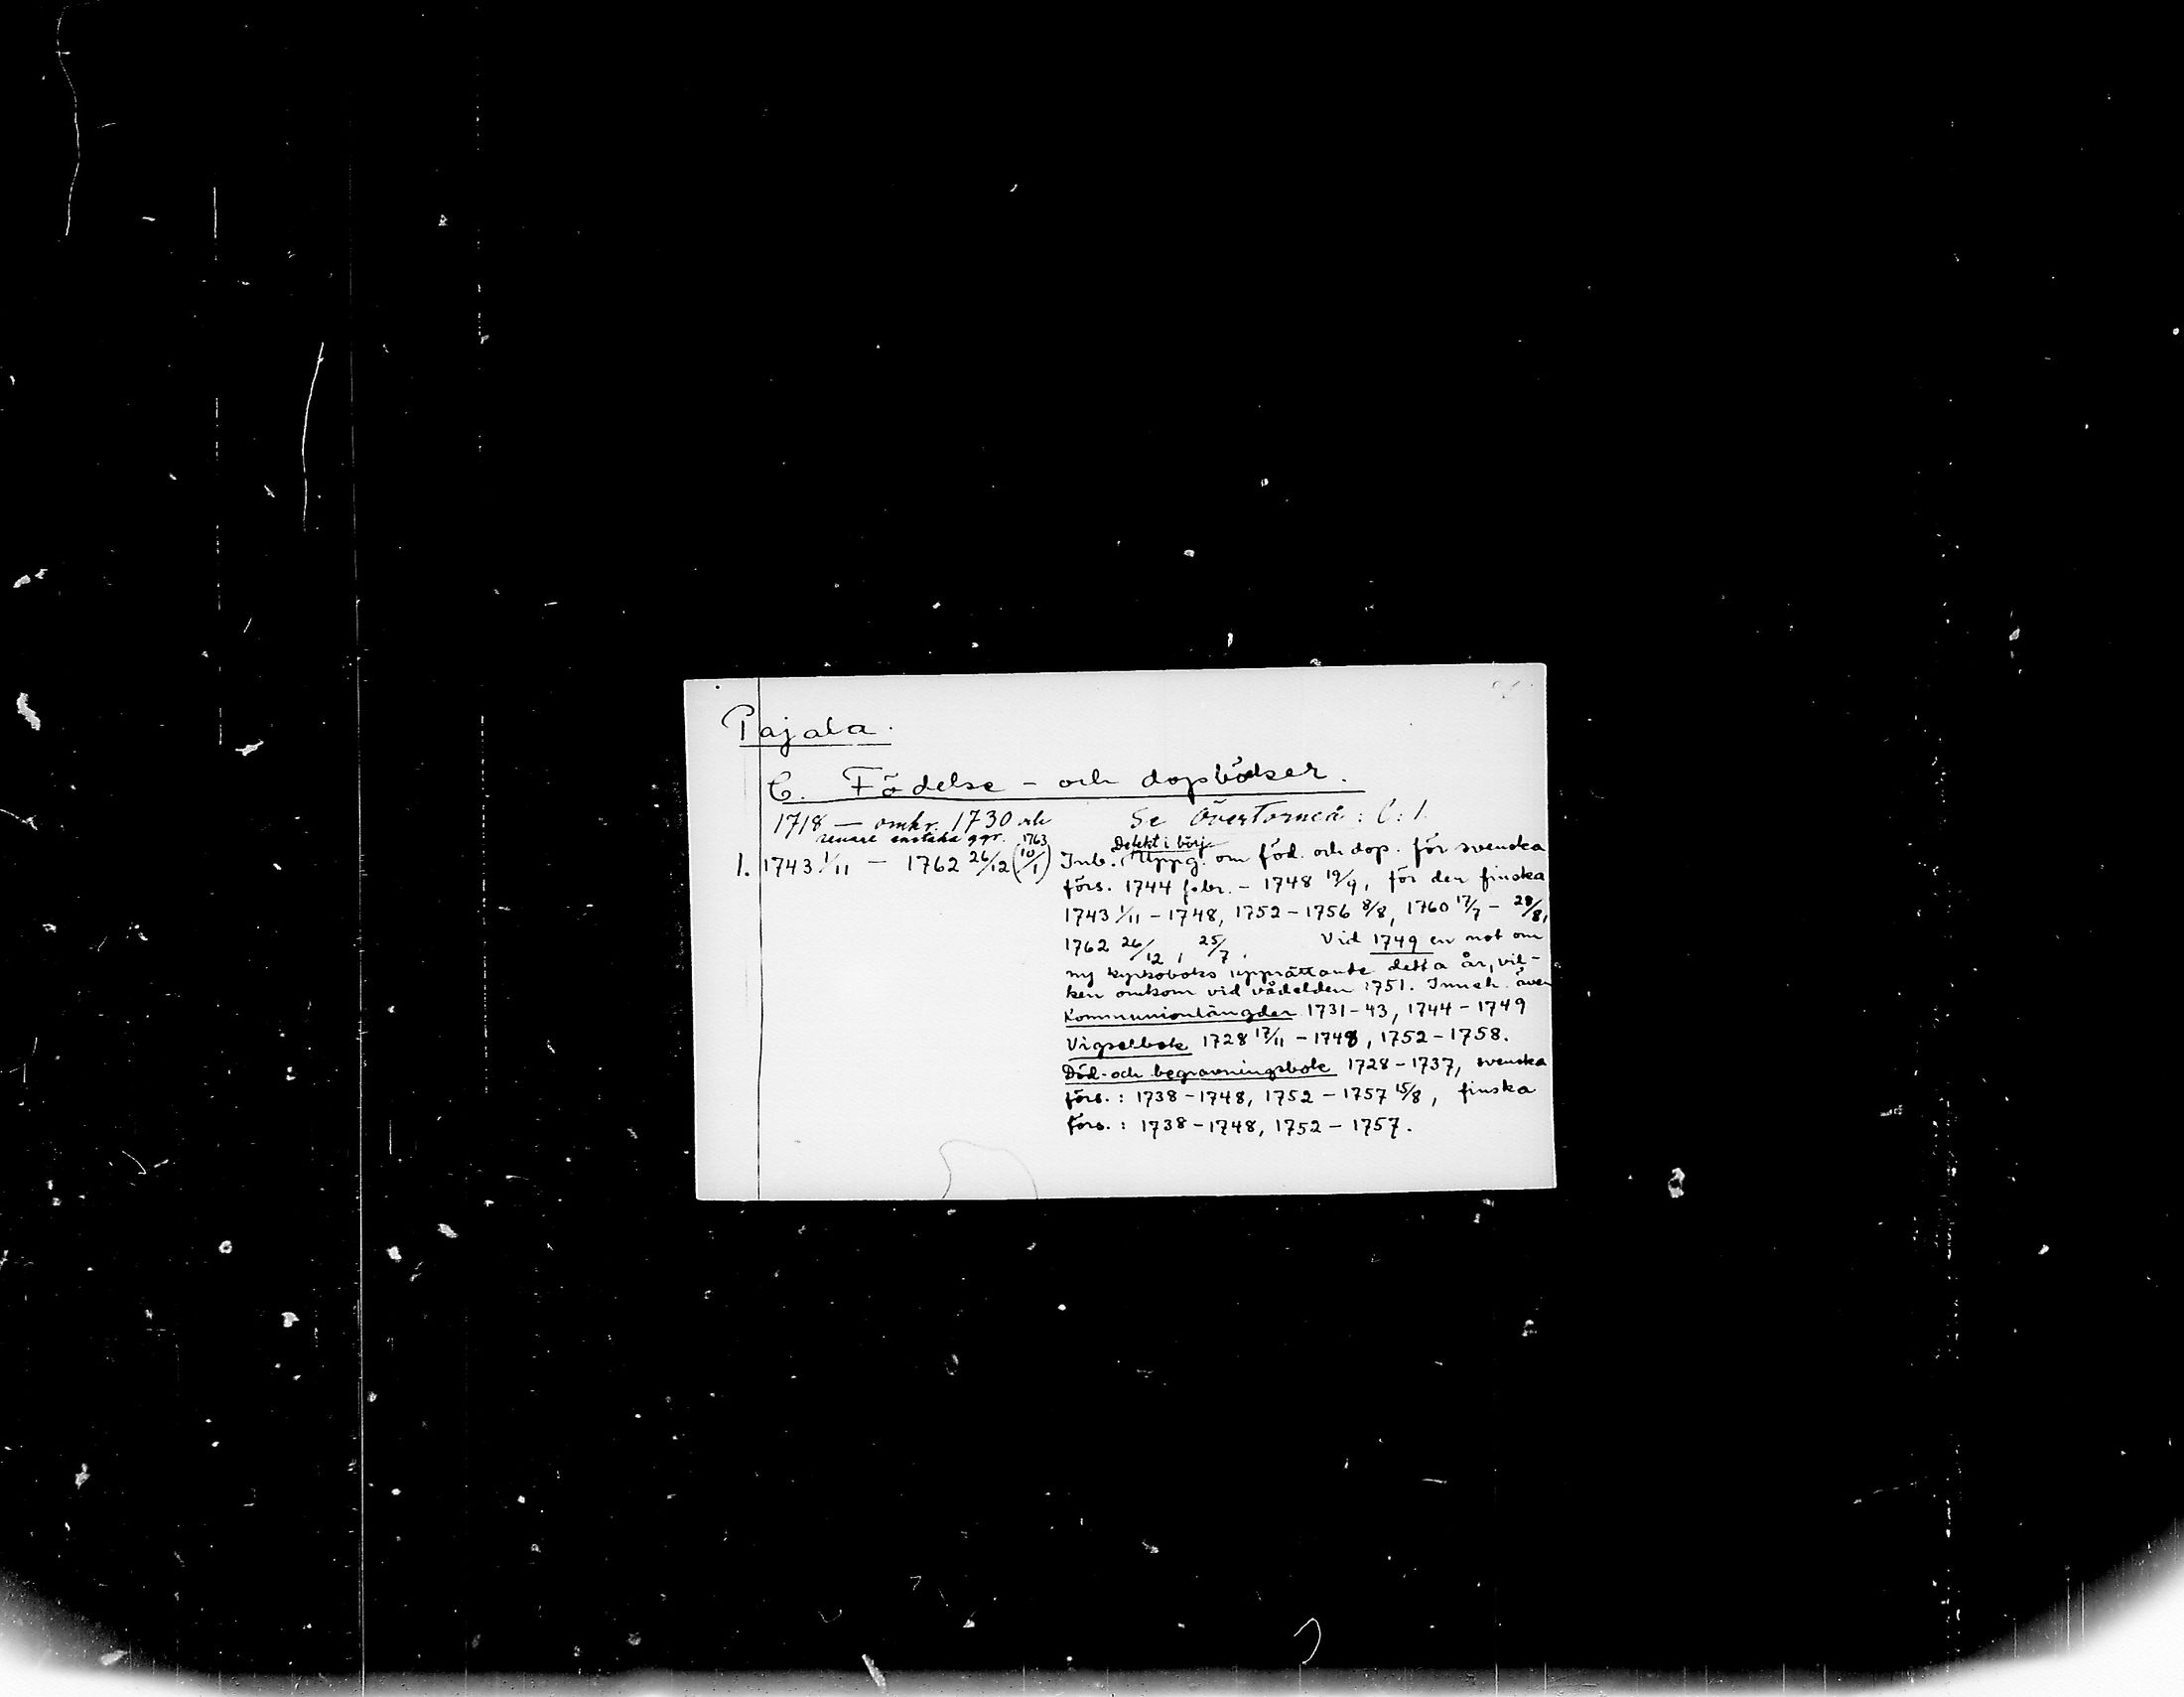 Pajala.
C. Födelse- och dopböcker.
1718 — omkr. 1730 och
senare enstaka ggr.
Se Övertorneå: C: 1.
1. 1743 1/11 — 1762 26/12 (1763 10/1)
Defekt i börj.
Inb. Uppg. om föd. och dop. för svenska
förs. 1744 febr. – 1748 19/9, för den finska
1743 1/11 – 1748, 1752 – 1756 8/8, 1760 17/7 – 28/8,
1762 26/12, 25/7. Vid 1749 en not om
ny kyrkoboks upprättande detta år, vil-
ken omkom vid vådelden 1751. Inneh. även
Kommunionlängder 1731–43, 1744–1749
Vigselbok 1728 17/11 – 1748, 1752–1758.
Död- och begravningsbok 1728–1737, svenska
förs.: 1738–1748, 1752–1757 15/8, finska
förs.: 1738–1748, 1752–1757.